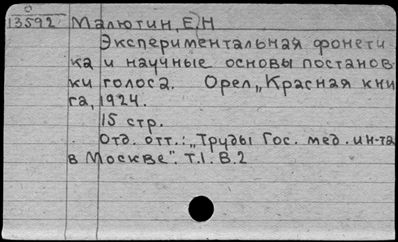 0
13592 Малютин, Е. Н
Экспериментальная фонети
ка и научные основы постанов
ки голоса. Орел „Красная кни
га, 1924.
15 стр.
Отд. отт.: „Труды Гос. мед. ин-та
в Москве". т.1. В.2